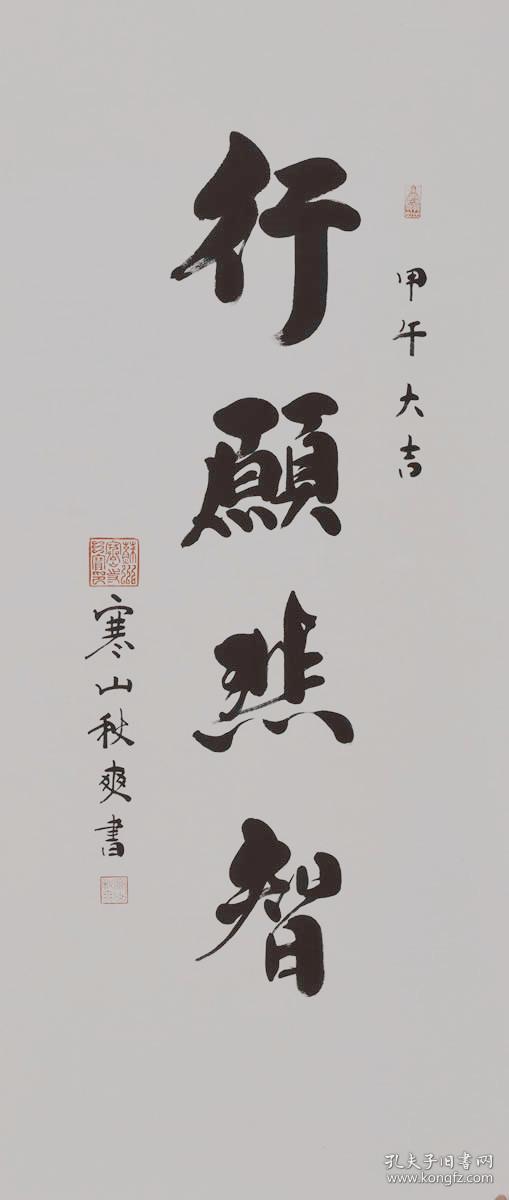 甲午大吉
行願悲智
寒山秋爽書
孔夫子旧书网
www.kongfz.com